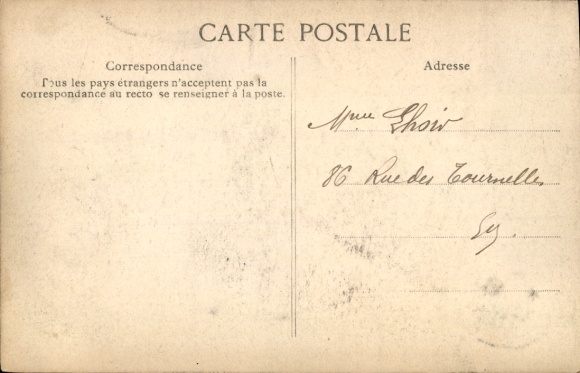 CARTE POSTALE
Correspondance
Tous les pays étrangers n'acceptent pas la
correspondance au recto se renseigner à la poste.
Adresse
Mme
86 Rue des Tournelles